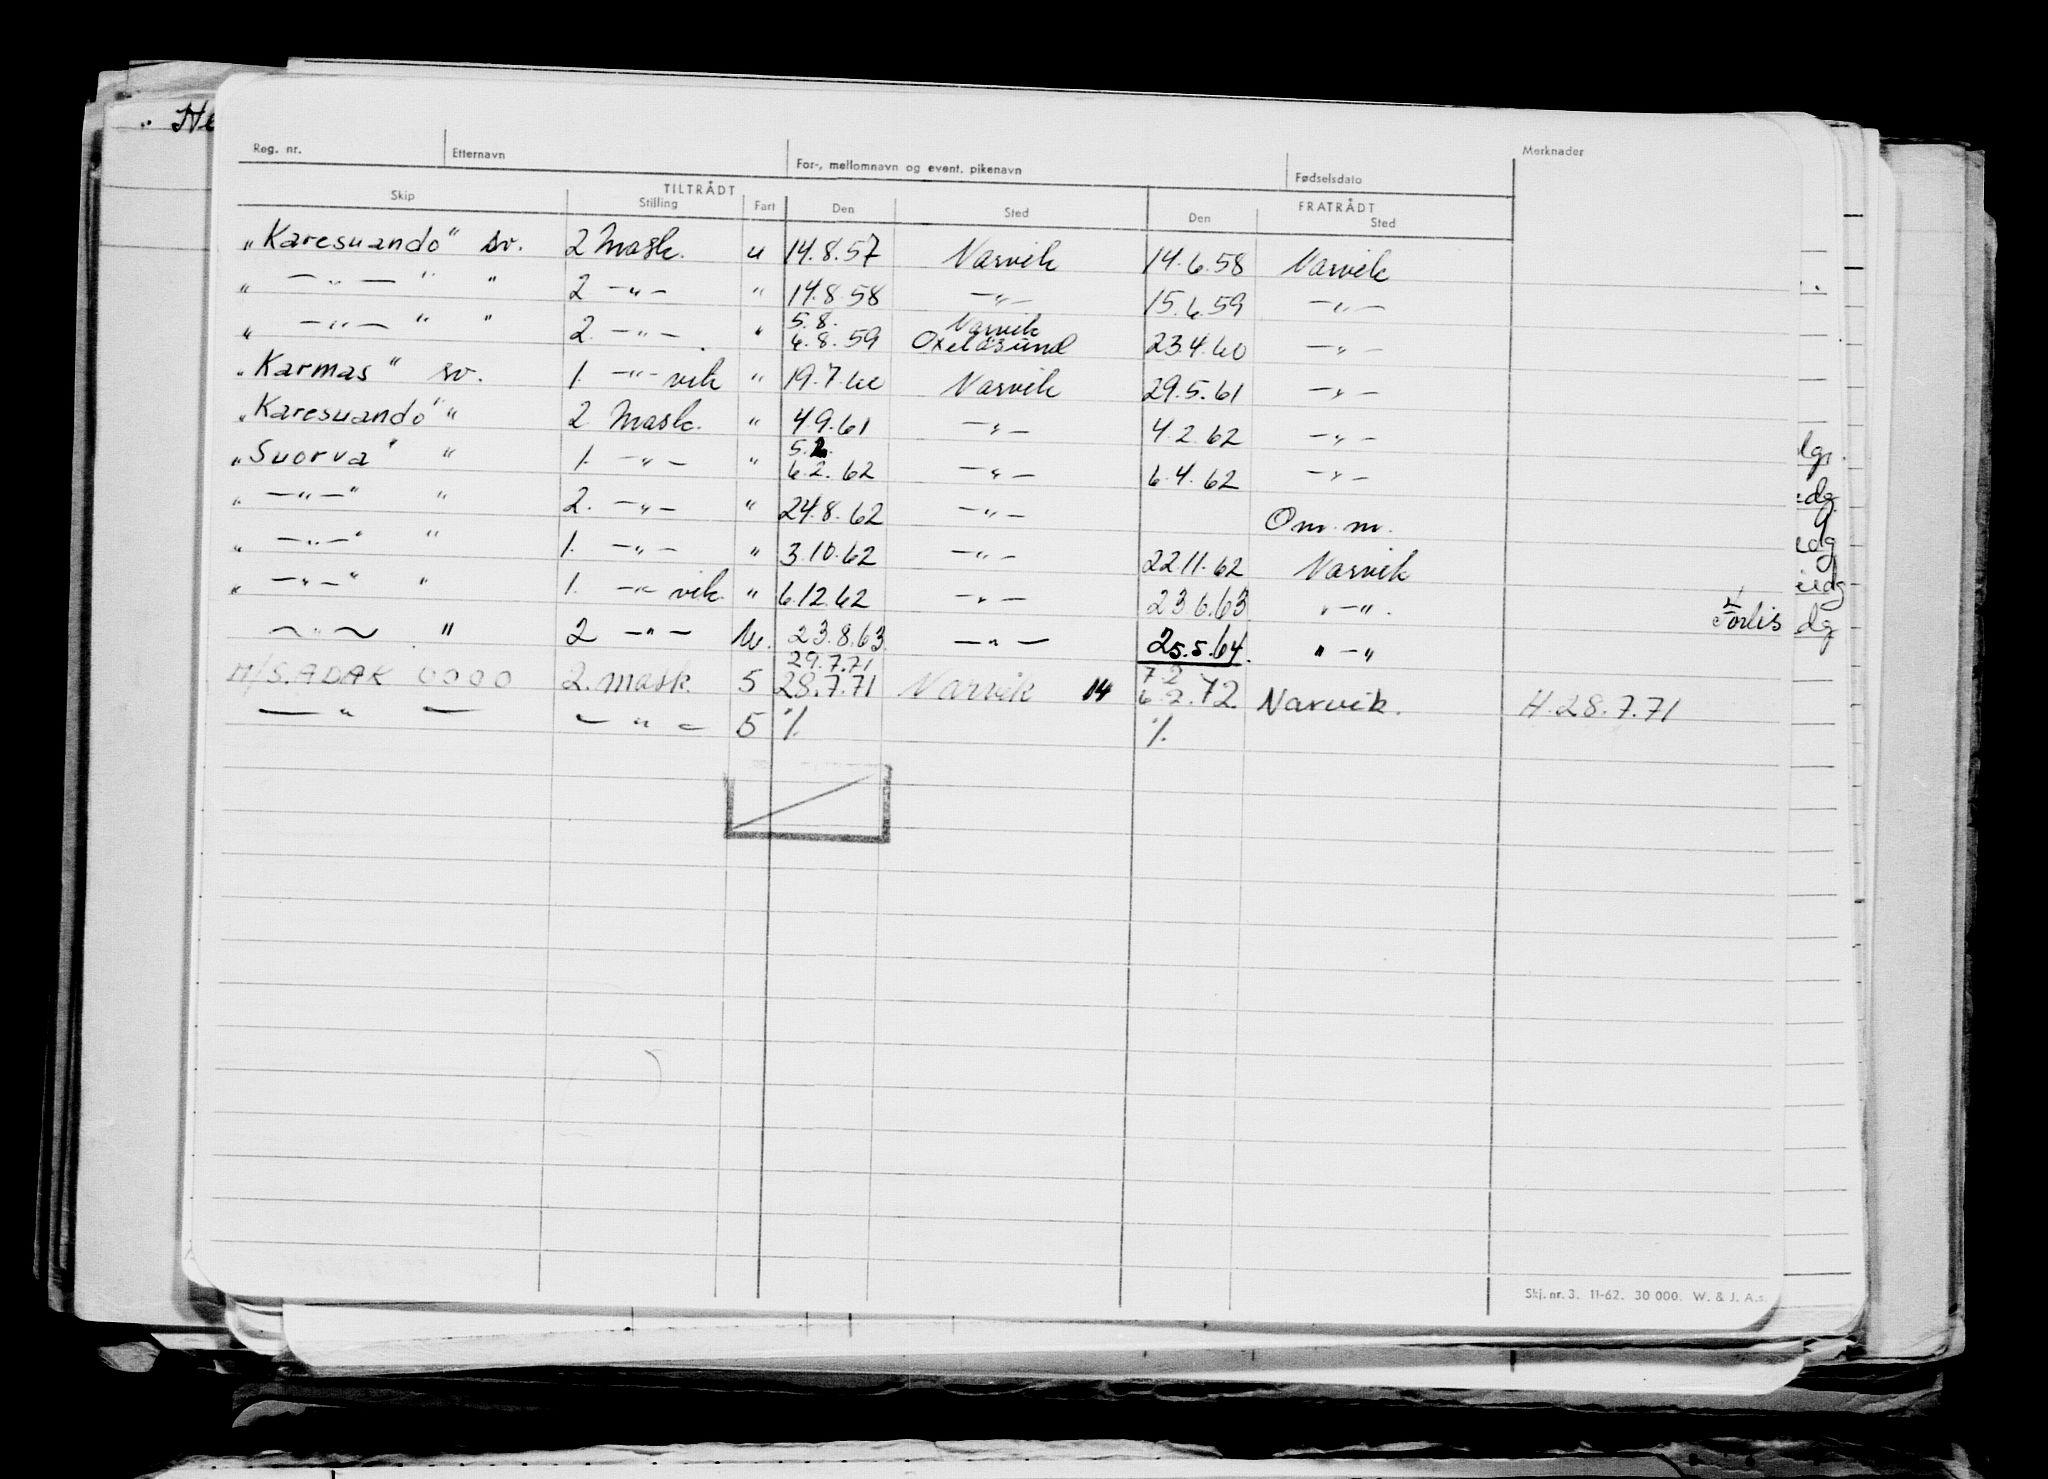 „ He
Reg. nr. Etternavn For-, mellomnavn og event. pikenavn Fødselsdato Merknader
TILTRÅDT FRATRÅDT
Skip Stilling Fart Den Sted Den Sted
„Karesuando" sv. 2 Mask. u 14.8.57 Narvik 14.6.58 Narvik
„ — „ — " " 2 — „ — " 14.8.58 — „ — 15.6.59 — „ —
5.8. Narvik
„ — „ — " " 2. — „ — " 6.8.59 Oxelösund 23.4.60 — „ —
„Karmas" sv. 1. — „ — vik " 19.7.60 Narvik 29.5.61 — „ —
„Karesuando" " 2 Mask. " 4.9.61 — „ — 4.2.62 — „ —
5.2.
„Suorva" " 1. — „ — " 6.2.62 — „ — 6.4.62 — „ —
„ — „ — " " 2. — „ — " 24.8.62 — „ — Om. m.
„ — „ — " " 1. — „ — " 3.10.62 — „ — 22.11.62 Narvik
„ — „ — " " 1. — „ — vik. " 6.12.62 — „ — 23.6.63 „ — „.
— „ — " 2 — „ — 23.8.63 — „ — 25.5.64. „ — „ Forlis
29.7.71 7.2
M/S. ADAK 0000 2. mask. 5 28.7.71 Narvik 14 6.2.72 Narvik. H. 28.7.71
— „ — — „ — 5 %. %.
Skj. nr. 3. 11-62. 30 000. W. & J. A.s.